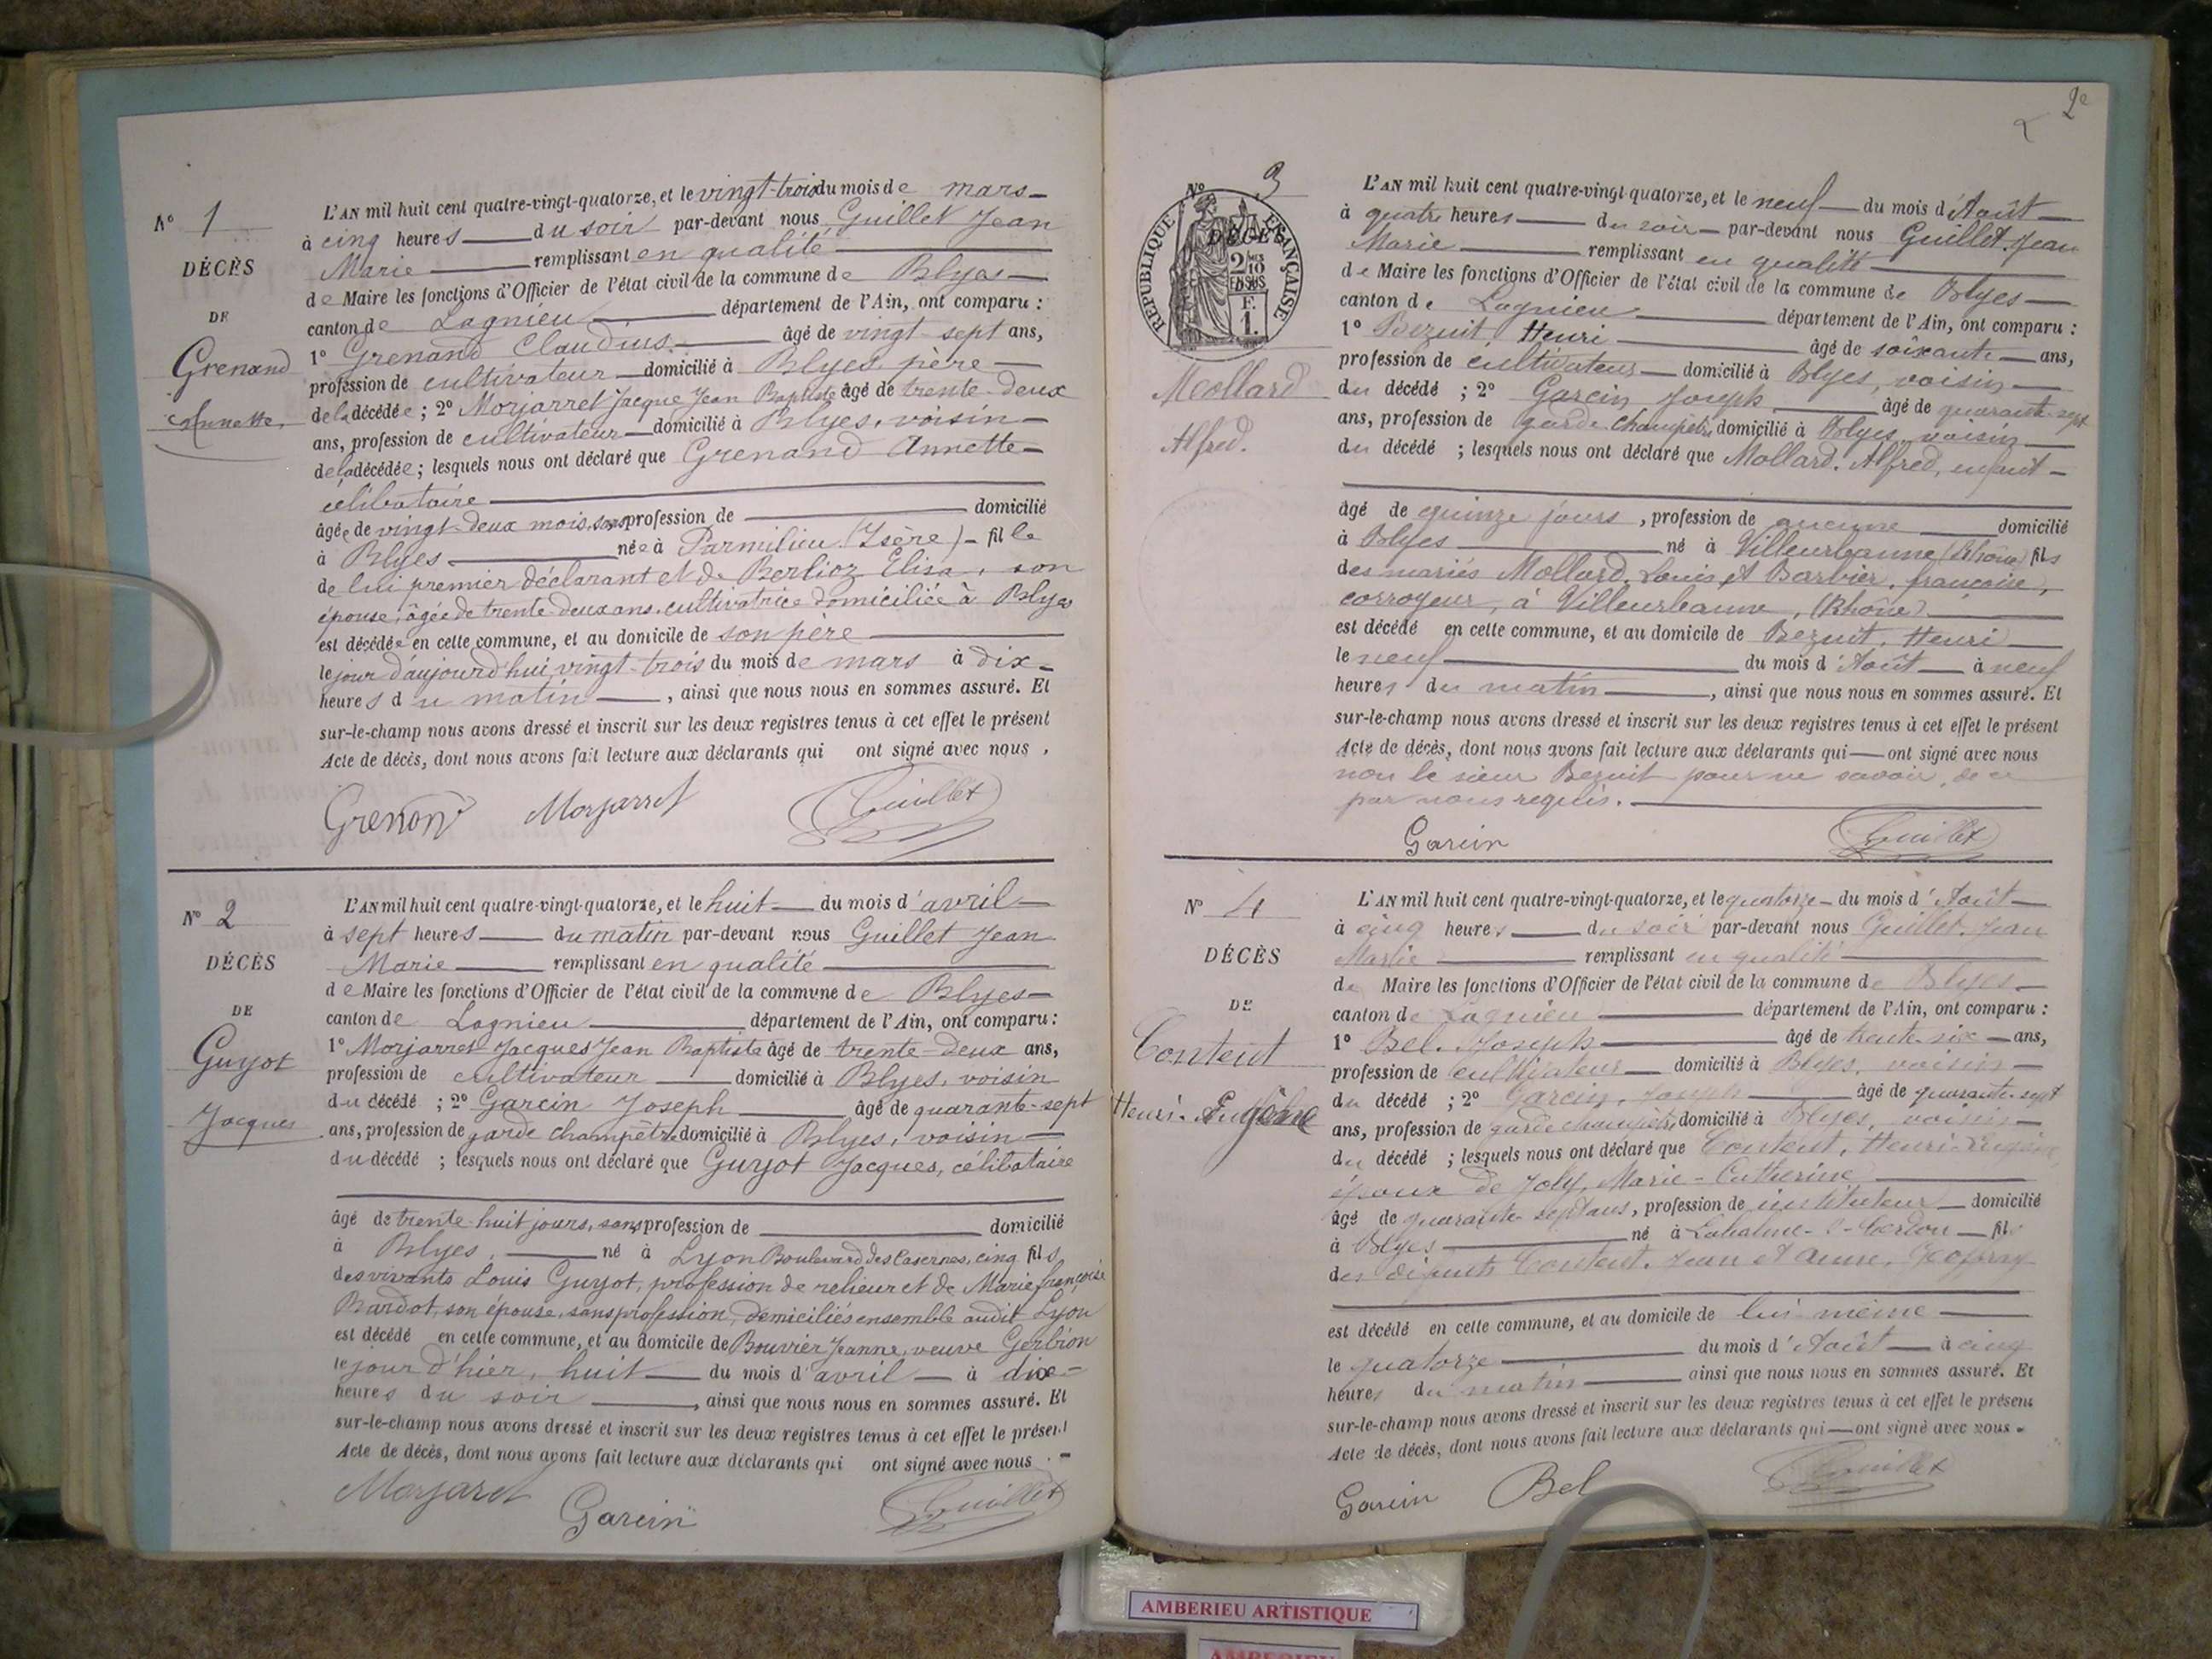 N° 1
DÉCÈS
DE
Grenand
Annette.
L'AN mil huit cent quatre-vingt-quatorze, et le vingt-trois du mois de mars
à cinq heures du soir par-devant nous Guillet Jean
Marie remplissant en qualité
de Maire les fonctions d'Officier de l'état civil de la commune de Blyes
canton de Lagnieu département de l'Ain, ont comparu :
1° Grenand Claudius âgé de vingt-sept ans,
profession de cultivateur domicilié à Blyes, père
de la décédée ; 2° Morjarret Jacque Jean Baptiste âgé de trente-deux
ans, profession de cultivateur domicilié à Blyes, voisin
de la décédée ; lesquels nous ont déclaré que Grenand Annette
célibataire
âgée de vingt-deux mois, sans profession de domicilié
à Blyes née à Parmilieu (Isère) fille
de lui premier déclarant et de Berlioz Elisa, son
épouse, âgée de trente-deux ans, cultivatrice domiciliée à Blyes
est décédée en cette commune, et au domicile de son père
le jour d'aujourd'hui, vingt-trois du mois de mars à dix
heures du matin, ainsi que nous nous en sommes assuré. Et
sur-le-champ nous avons dressé et inscrit sur les deux registres tenus à cet effet le présent
Acte de décès, dont nous avons fait lecture aux déclarants qui ont signé avec nous,
Grenand Morjarret Guillet
N° 2
DÉCÈS
DE
Guyot
Jacques
L'AN mil huit cent quatre-vingt-quatorze, et le huit du mois d'avril
à sept heures du matin par-devant nous Guillet Jean
Marie remplissant en qualité
de Maire les fonctions d'Officier de l'état civil de la commune de Blyes
canton de Lagnieu département de l'Ain, ont comparu :
1° Morjarret Jacques Jean Baptiste âgé de trente-deux ans,
profession de cultivateur domicilié à Blyes, voisin
du décédé ; 2° Garcin Joseph âgé de quarante-sept
ans, profession de garde champêtre domicilié à Blyes, voisin
du décédé ; lesquels nous ont déclaré que Guyot Jacques, célibataire
âgé de trente-huit jours, sans profession de domicilié
à Blyes, né à Lyon Boulevard des Casernes, cinq fils
des vivants Louis Guyot, profession de relieur et de Marie françoise
Bardot, son épouse, sans profession, domiciliés ensemble audit Lyon
est décédé en cette commune, et au domicile de Bouvier Jeanne, veuve Gerbion
le jour d'hier, huit du mois d'avril à dix
heures du soir, ainsi que nous nous en sommes assuré. Et
sur-le-champ nous avons dressé et inscrit sur les deux registres tenus à cet effet le présent
Acte de décès, dont nous avons fait lecture aux déclarants qui ont signé avec nous.
Morjaret Garcin Guillet
2e
N° 3
DÉCÈS
RÉPUBLIQUE FRANÇAISE
2/10 EN SUS
F. 1.
Mollard
Alfred.
L'AN mil huit cent quatre-vingt-quatorze, et le neuf du mois d'Août
à quatre heures du soir par-devant nous Guillet, Jean
Marie remplissant en qualité
de Maire les fonctions d'Officier de l'état civil de la commune de Blyes
canton de Lagnieu département de l'Ain, ont comparu :
1° Bezuit, Henri âgé de soixante ans,
profession de cultivateur domicilié à Blyes, voisin
du décédé ; 2° Garcin Joseph âgé de quarante-sept
ans, profession de garde champêtre domicilié à Blyes, voisin
du décédé ; lesquels nous ont déclaré que Mollard, Alfred, enfant
âgé de quinze jours, profession de aucune domicilié
à Blyes né à Villeurbanne (Rhône) fils
des mariés Mollard, Louis et Barbier, françoise,
corroyeur, à Villeurbanne, (Rhône)
est décédé en cette commune, et au domicile de Bezuit, Henri
le neuf du mois d'Août à neuf
heures du matin, ainsi que nous nous en sommes assuré. Et
sur-le-champ nous avons dressé et inscrit sur les deux registres tenus à cet effet le présent
Acte de décès, dont nous avons fait lecture aux déclarants qui ont signé avec nous
non le sieur Bezuit pour ne savoir, de ce
par nous requis.
Garcin Guillet
N° 4
DÉCÈS
DE
Content
Henri-Eugène
L'AN mil huit cent quatre-vingt-quatorze, et le quatorze du mois d'Août
à cinq heures du soir par-devant nous Guillet, Jean
Marie remplissant en qualité
de Maire les fonctions d'Officier de l'état civil de la commune de Blyes
canton de Lagnieu département de l'Ain, ont comparu :
1° Bel, Joseph âgé de trente-six ans,
profession de cultivateur domicilié à Blyes, voisin
du décédé ; 2° Garcin, Joseph âgé de quarante-sept
ans, profession de garde champêtre domicilié à Blyes, voisin
du décédé ; lesquels nous ont déclaré que Content, Henri-Eugène,
époux de Joly, Marie-Catherine
âgé de quarante-sept ans, profession de instituteur domicilié
à Blyes né à Labalme-s-Cerdon fils
des défunts Content, Jean et Anne,
est décédé en cette commune, et au domicile de lui-même
le quatorze du mois d'Août à cinq
heures du matin ainsi que nous nous en sommes assuré. Et
sur-le-champ nous avons dressé et inscrit sur les deux registres tenus à cet effet le présent
Acte de décès, dont nous avons fait lecture aux déclarants qui ont signé avec nous.
Garcin Bel Guillet
AMBERIEU ARTISTIQUE
AMBERIEU